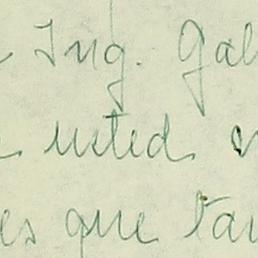 Ing. Gal
usted
es que tan